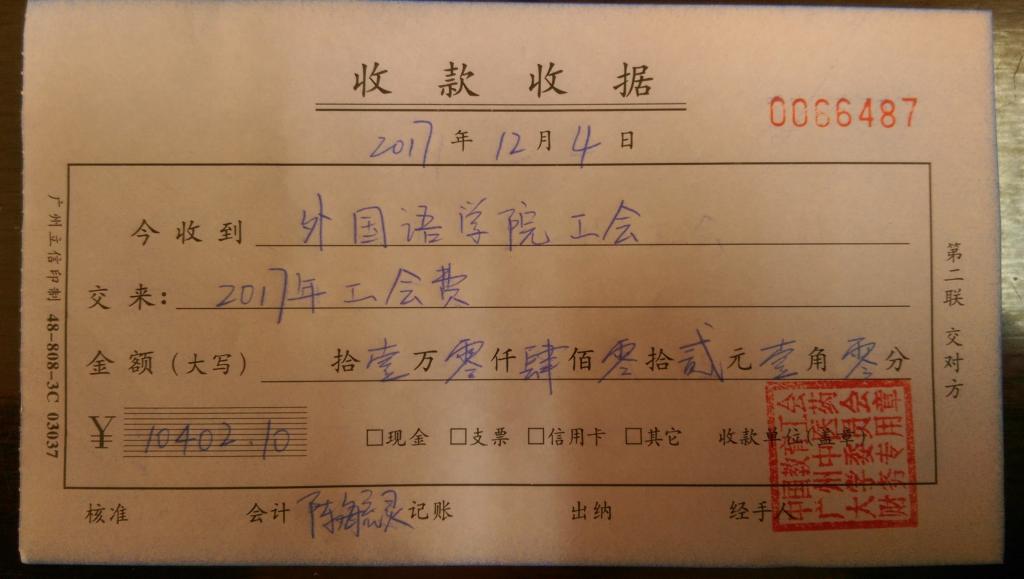 收款收据
0066487
2017年12月4日
今收到 外国语学院工会
交来: 2017年工会费
金额(大写) 拾壹万零仟肆佰零拾贰元壹角零分
¥ 10402.10 □现金 □支票 □信用卡 □其它 收款单位(盖章)
核准 会计 陈 灵 记账 出纳 经手人
中国教育工会
广州中医药
大学委员会
财务专用章
广州立信印制 48-808-3C 03037
第二联 交对方